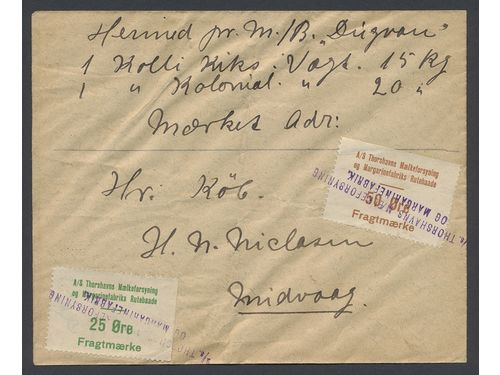 Hermed pr. M/B. „Dúgvan"
1 Kolli Kiks. Vægt. 15 Kg
1 " Kolonial. " 20 "
Mærket Adr:
Hr. Köb.
H. N. Niclasen
Midvaag.
A/S Thorshavns Mælkeforsyning
og Margarinefabriks Rutebaade
50 Øre
Fragtmærke
A/S THORSHAVNS MÆLKEFORSYNING
OG MARGARINEFABRIK.
A/S Thorshavns Mælkeforsyning
og Margarinefabriks Rutebaade
25 Øre
Fragtmærke
A/S THORSHAVNS MÆLKEFORSYNING
OG MARGARINEFABRIK.